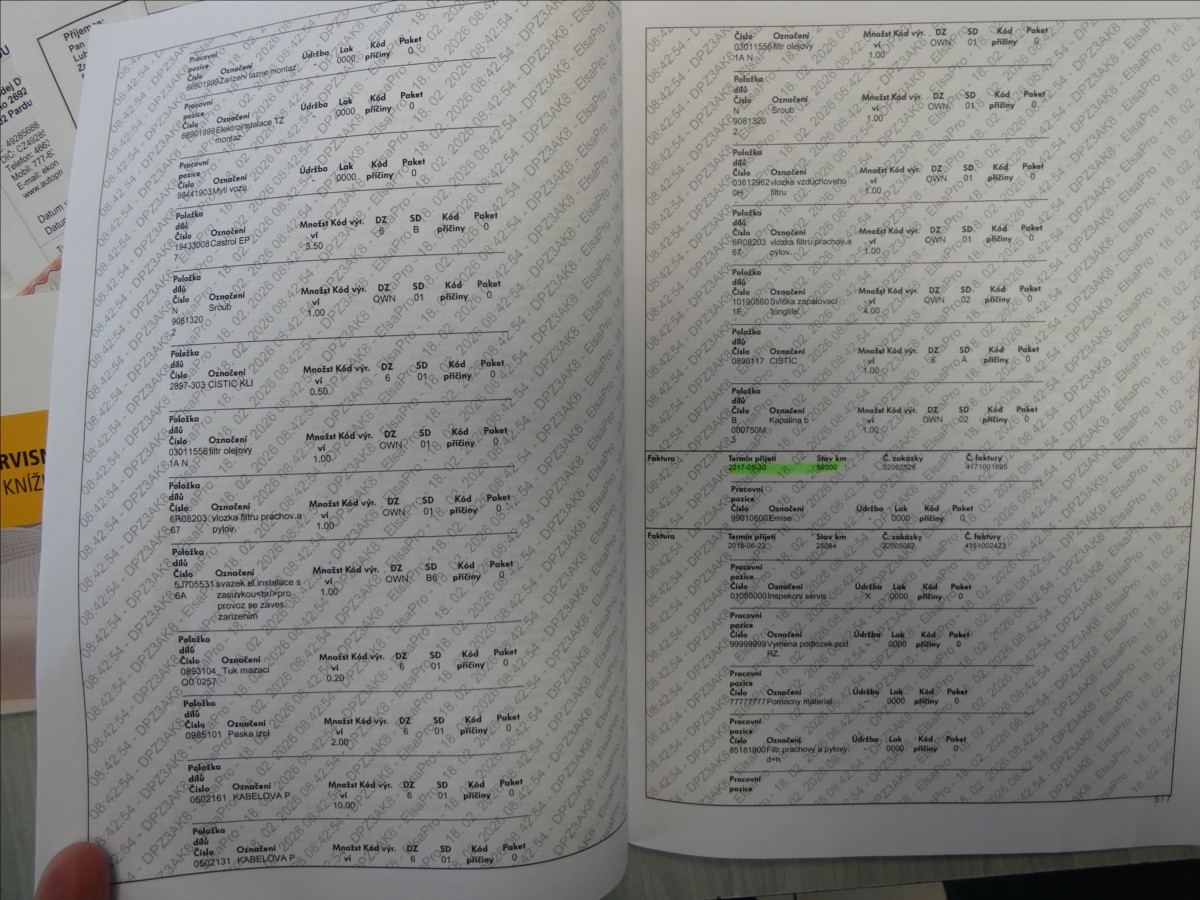 Příjem
Pan
Telefon: 466
Mobil: 777-6
E-mail: ekon
Datum
RVISN
KNÍŽ
Pracovní
pozice
Číslo Označení Údržba Lak Kód Paket
66801999 Zarizeni tazne montaz - 0000 příčiny 0
Pracovní
pozice
Číslo Označení Údržba Lak Kód Paket
66901999 Elektroinstalace TZ - 0000 příčiny 0
montaz
Pracovní
pozice
Číslo Označení Údržba Lak Kód Paket
99441903 Myti vozu - 0000 příčiny 0
Položka
dílů
Číslo Označení Množst Kód výr. DZ SD Kód Paket
19433008 Castrol EP ví 6 B příčiny 0
7 3.50
Položka
dílů
Číslo Označení Množst Kód výr. DZ SD Kód Paket
N Sroub ví OWN 01 příčiny 0
9081320 1.00
2
Položka
dílů
Číslo Označení Množst Kód výr. DZ SD Kód Paket
2897-303 CISTIC KLI ví 6 01 příčiny 0
0.50
Položka
dílů
Číslo Označení Množst Kód výr. DZ SD Kód Paket
03011556 filtr olejový ví OWN 01 příčiny 0
1A N 1.00
Položka
dílů
Číslo Označení Množst Kód výr. DZ SD Kód Paket
6R08203 vlozka filtru prachov.a ví OWN 01 příčiny 0
67 pylov. 1.00
Položka
dílů
Číslo Označení Množst Kód výr. DZ SD Kód Paket
5J705531 svazek el.instalace s ví OWN B6 příčiny 0
6A zasuvkou<br/>pro 1.00
provoz se zaves.
zarizenim
Položka
dílů
Číslo Označení Množst Kód výr. DZ SD Kód Paket
0893104 Tuk mazaci ví 6 01 příčiny 0
OO 0257 0.20
Položka
dílů
Číslo Označení Množst Kód výr. DZ SD Kód Paket
0985101 Paska izol ví 6 01 příčiny 0
2.00
Položka
dílů
Číslo Označení Množst Kód výr. DZ SD Kód Paket
0502161 KABELOVA P ví 6 01 příčiny 0
10.00
Položka
dílů
Číslo Označení Množst Kód výr. DZ SD Kód Paket
0502131 KABELOVA P ví 6 01 příčiny 0
Číslo Označení Množst Kód výr. DZ SD Kód Paket
03011556 filtr olejový ví OWN 01 příčiny 0
1A N 1.00
Položka
dílů
Číslo Označení Množst Kód výr. DZ SD Kód Paket
N Sroub ví OWN 01 příčiny 0
9081320 1.00
2
Položka
dílů
Číslo Označení Množst Kód výr. DZ SD Kód Paket
03612962 vlozka vzduchoveho ví OWN 01 příčiny 0
0H filtru 1.00
Položka
dílů
Číslo Označení Množst Kód výr. DZ SD Kód Paket
6R08203 vlozka filtru prachov.a ví OWN 01 příčiny 0
67 pylov. 1.00
Položka
dílů
Číslo Označení Množst Kód výr. DZ SD Kód Paket
10190560 Svíčka zapalovací ví OWN 02 příčiny 0
1F 'longlife' 4.00
Položka
dílů
Číslo Označení Množst Kód výr. DZ SD Kód Paket
0890117 CISTIC ví 6 A příčiny 0
1.00
Položka
dílů
Číslo Označení Množst Kód výr. DZ SD Kód Paket
B Kapalina b ví OWN 02 příčiny 0
000750M 1.00
3
Faktura Termín přijetí Stav km Č. zakázky Č. faktury
2017-05-30 58300 32065526 4171001695
Pracovní
pozice
Číslo Označení Údržba Lak Kód Paket
99010600 Emise - 0000 příčiny 0
Faktura Termín přijetí Stav km Č. zakázky Č. faktury
Pracovní
pozice
Číslo Označení Údržba Lak Kód Paket
01050000 Inspekcni servis X 0000 příčiny 0
Pracovní
pozice
Číslo Označení Údržba Lak Kód Paket
99999999 Vymena podlozek pod - 0000 příčiny 0
RZ.
Pracovní
pozice
Číslo Označení Údržba Lak Kód Paket
77777777 Pomocny material - 0000 příčiny 0
Pracovní
pozice
Číslo Označení Údržba Lak Kód Paket
85181900 Filtr prachovy a pylovy - 0000 příčiny 0
d+n
Pracovní
pozice
5/7
08:42:54 - DPZ3AK8 - ElsaPro - 18. 02. 2026